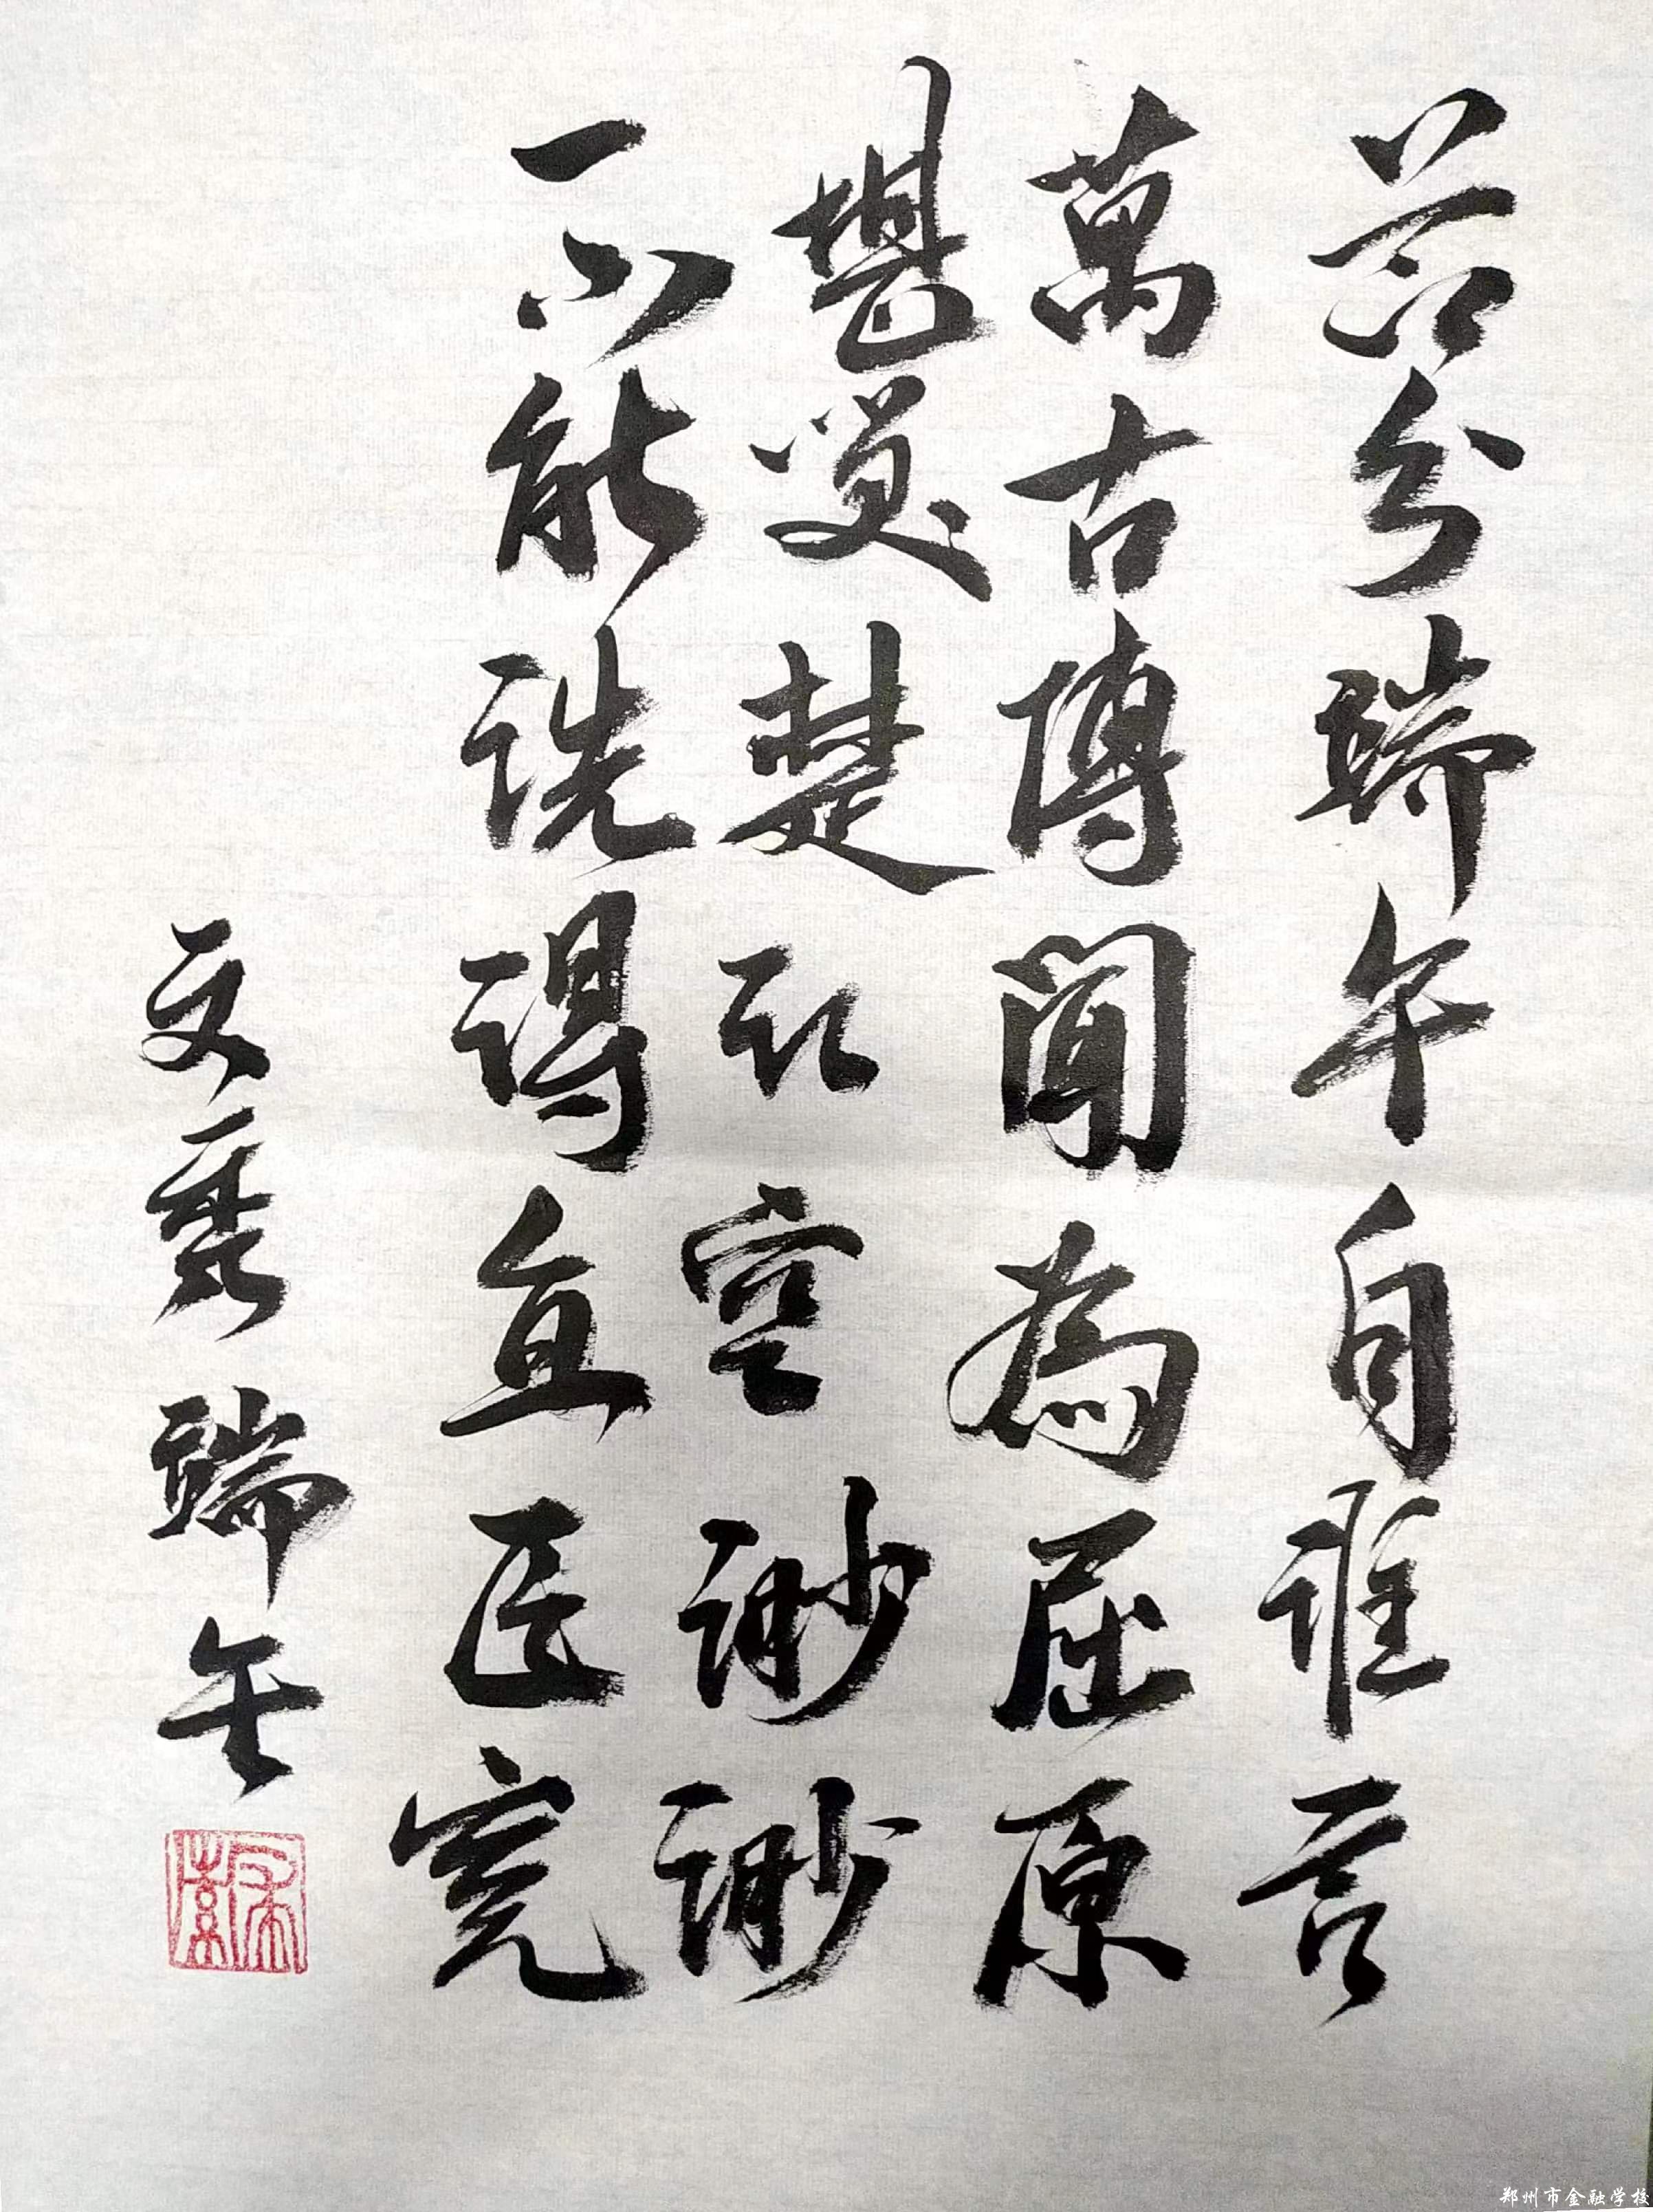 节分端午自谁言
萬古傳聞為屈原
堪笑楚江空渺渺
不能洗得直臣冤
文秀 端午
郑州市金融学校